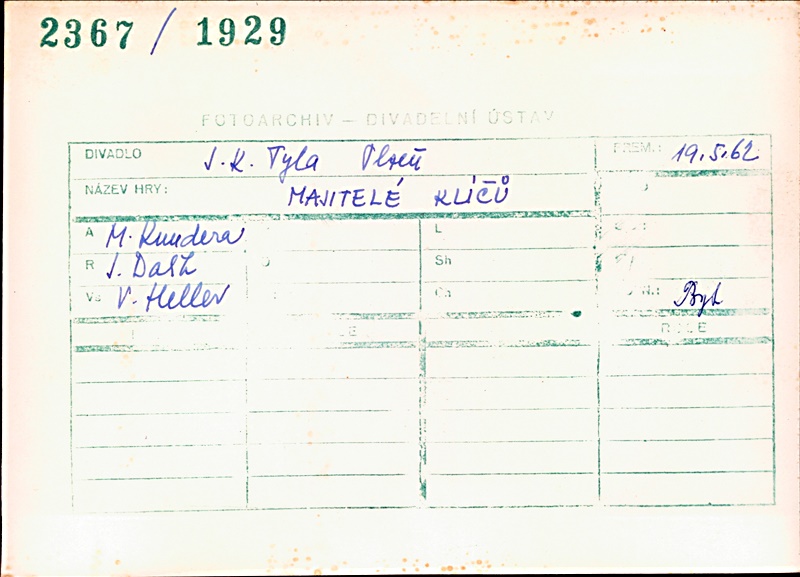 2367 / 1929
FOTOARCHIV — DIVADELNÍ ÚSTAV
DIVADLO J. K. Tyla Plzeň PREM.: 19.5.62
NÁZEV HRY: MAJITELÉ KLÍČŮ
A M. Kundera L
R J. Dalík Sh
Vs V. Heller Ch
Byt
ROLE